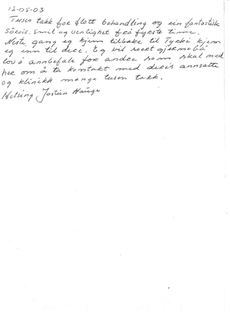 12-05-03
Tusen takk for flott behandling og ein fantastisk
Servis. Smil og venlighet frå fyrste time.
Neste gang eg kjem tilbake til Tyrkia kjem
eg inn til deci. Eg vil seert gjerne bli
lov å annbefale for andre som skal ned
her om å ta kontakt med decis annsatte
og klinikk mange tusen takk.
Helsing,